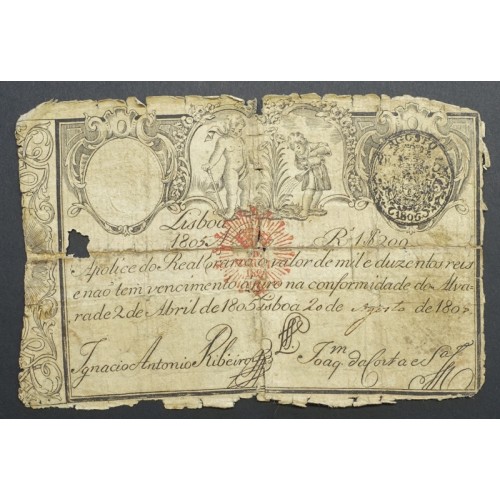 AGOSTO
1805
Lisboa
1805 Rs 1$200
Apolice do Real Erario o valor de mil e duzentos reis
e naõ tem vencimento de juro na conformidade do Alva
ra de 2 de Abril de 1805 Lisboa 20 de Agosto de 1805
Ignacio Antonio Ribeiro
Joaqm. da Costa e Sa